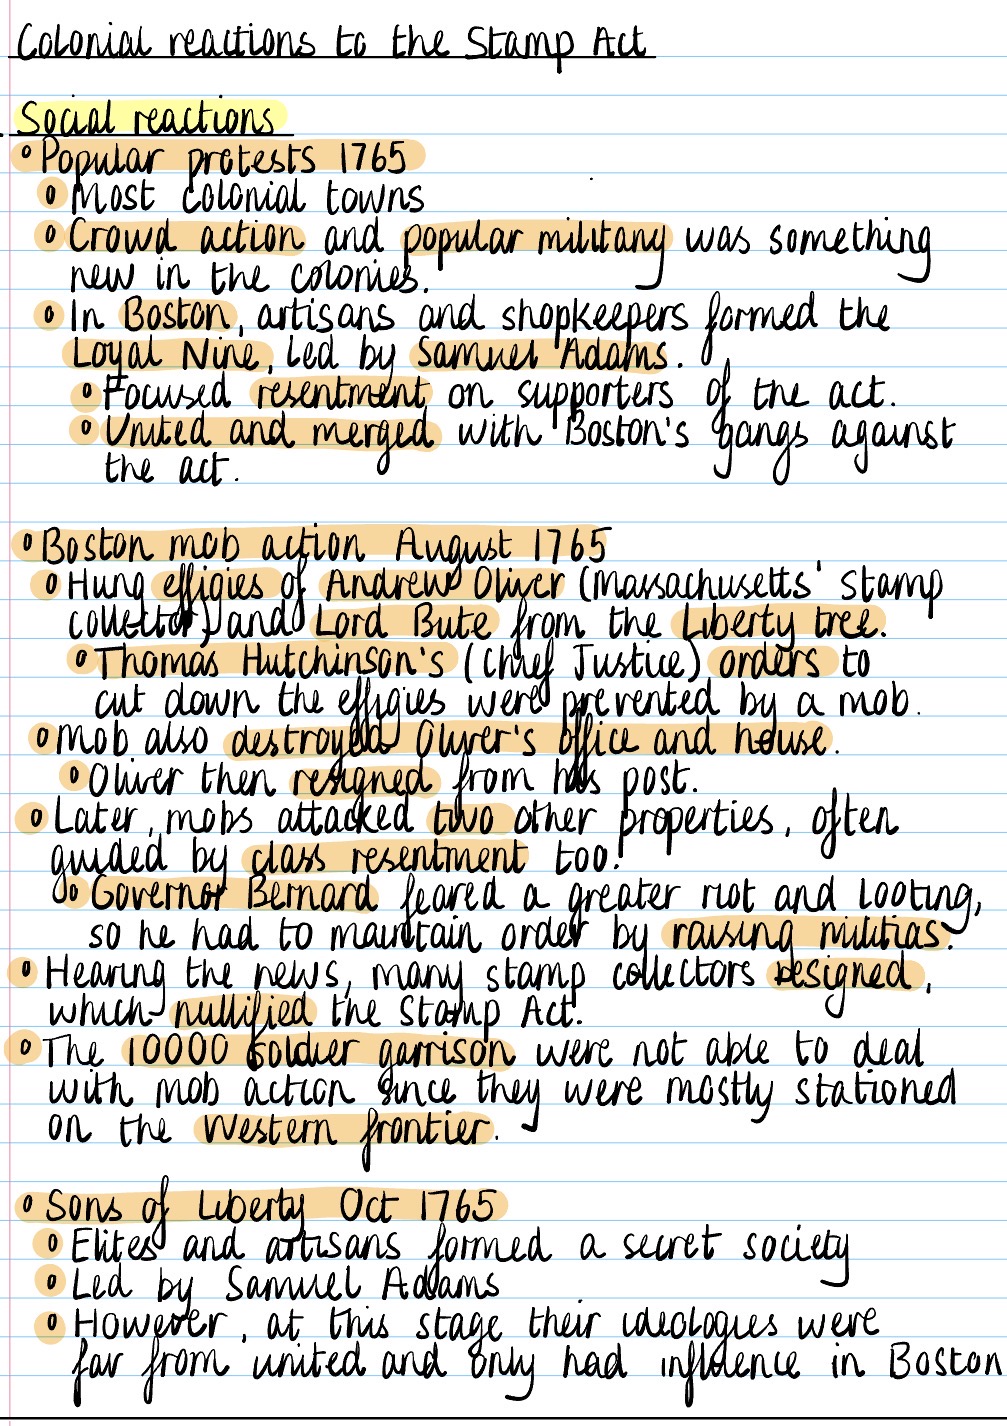 Colonial reactions to the Stamp Act
Social reactions
Popular protests 1765
Most colonial towns
Crowd action and popular militany was something
new in the colonies.
In Boston, artisans and shopkeepers formed the
Loyal Nine, led by Samuel Adams.
Focused resentment on supporters of the act.
United and merged with Boston's gangs against
the act.
Boston mob action August 1765
Hung effigies of Andrew Oliver (Massachusetts' stamp
collector) and Lord Bute from the Liberty tree.
Thomas Hutchinson's (Chief Justice) orders to
cut down the effigies were prevented by a mob.
Mob also destroyed Oliver's office and house.
Oliver then resigned from his post.
Later, mobs attacked two other properties, often
guided by class resentment too.
Governor Bernard feared a greater riot and looting,
so he had to maintain order by raising militias.
Hearing the news, many stamp collectors resigned,
which nullified the Stamp Act.
The 10000 soldier garrison were not able to deal
with mob action since they were mostly stationed
on the Western frontier.
Sons of Liberty Oct 1765
Elites and artisans formed a secret society
Led by Samuel Adams
However, at this stage their ideologies were
far from united and only had influence in Boston